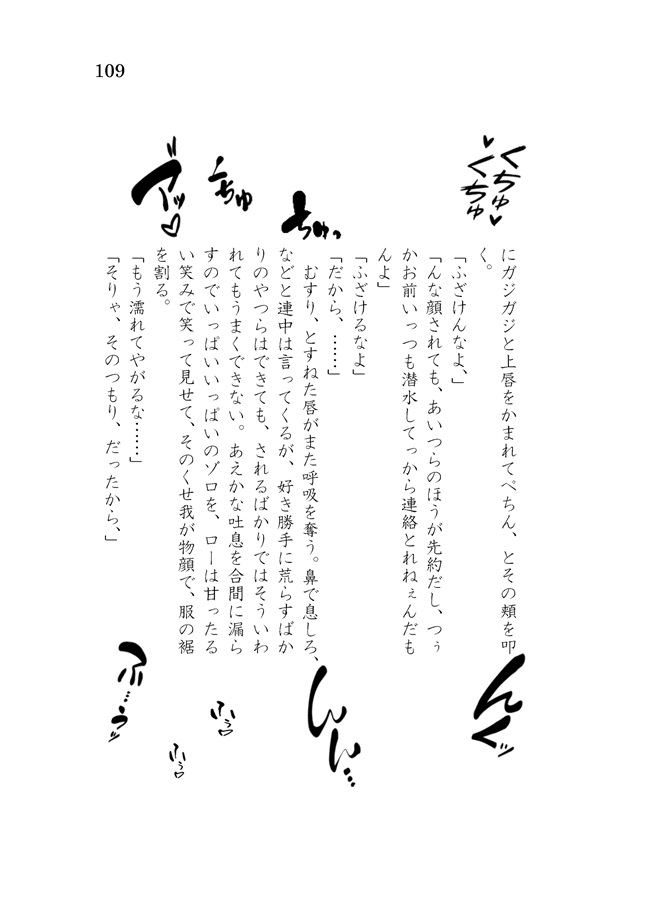 109
くちゅ♥
♥くちゅ
ちゅっ
ちゅ
ア゛ッ♡
にガジガジと上唇をかまれてぺちん、とその頬を叩
く。
「ふざけんなよ、」
「んな顔されても、あいつらのほうが先約だし、つぅ
かお前いっつも潜水してっから連絡とれねぇんだも
んよ」
「ふざけるなよ」
「だから、……」
むすり、とすねた唇がまた呼吸を奪う。鼻で息しろ、
などと連中は言ってくるが、好き勝手に荒らすばか
りのやつらはできても、されるばかりではそういわ
れてもうまくできない。あえかな吐息を合間に漏ら
すのでいっぱいいっぱいのゾロを、ローは甘ったる
い笑みで笑って見せて、そのくせ我が物顔で、服の裾
を割る。
「もう濡れてやがるな……」
「そりゃ、そのつもり、だったから、」
んぐッ
んんん…
ふぅ♡
ふぅ♡
ふ…ぅッ